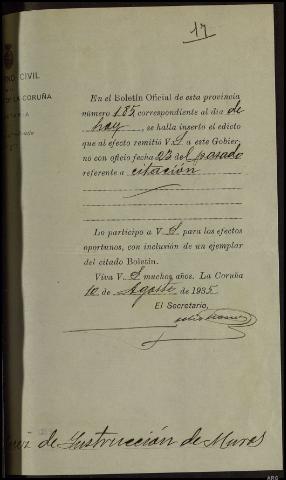 17
NO CIVIL
DE LA CORUÑA
En el Boletín Oficial de esta provincia
número 185, correspondiente al día de
hoy, se halla inserto el edicto
que al efecto remitió V. S a este Gobier-
no con oficio fecha 23 del pasado
referente a citación
Lo participo a V. S para los efectos
oportunos, con inclusión de un ejemplar
del citado Boletín.
Viva V. S muchos años. La Coruña
10 de Agosto de 1935
El Secretario,
de Instrucción de Muros
ARG